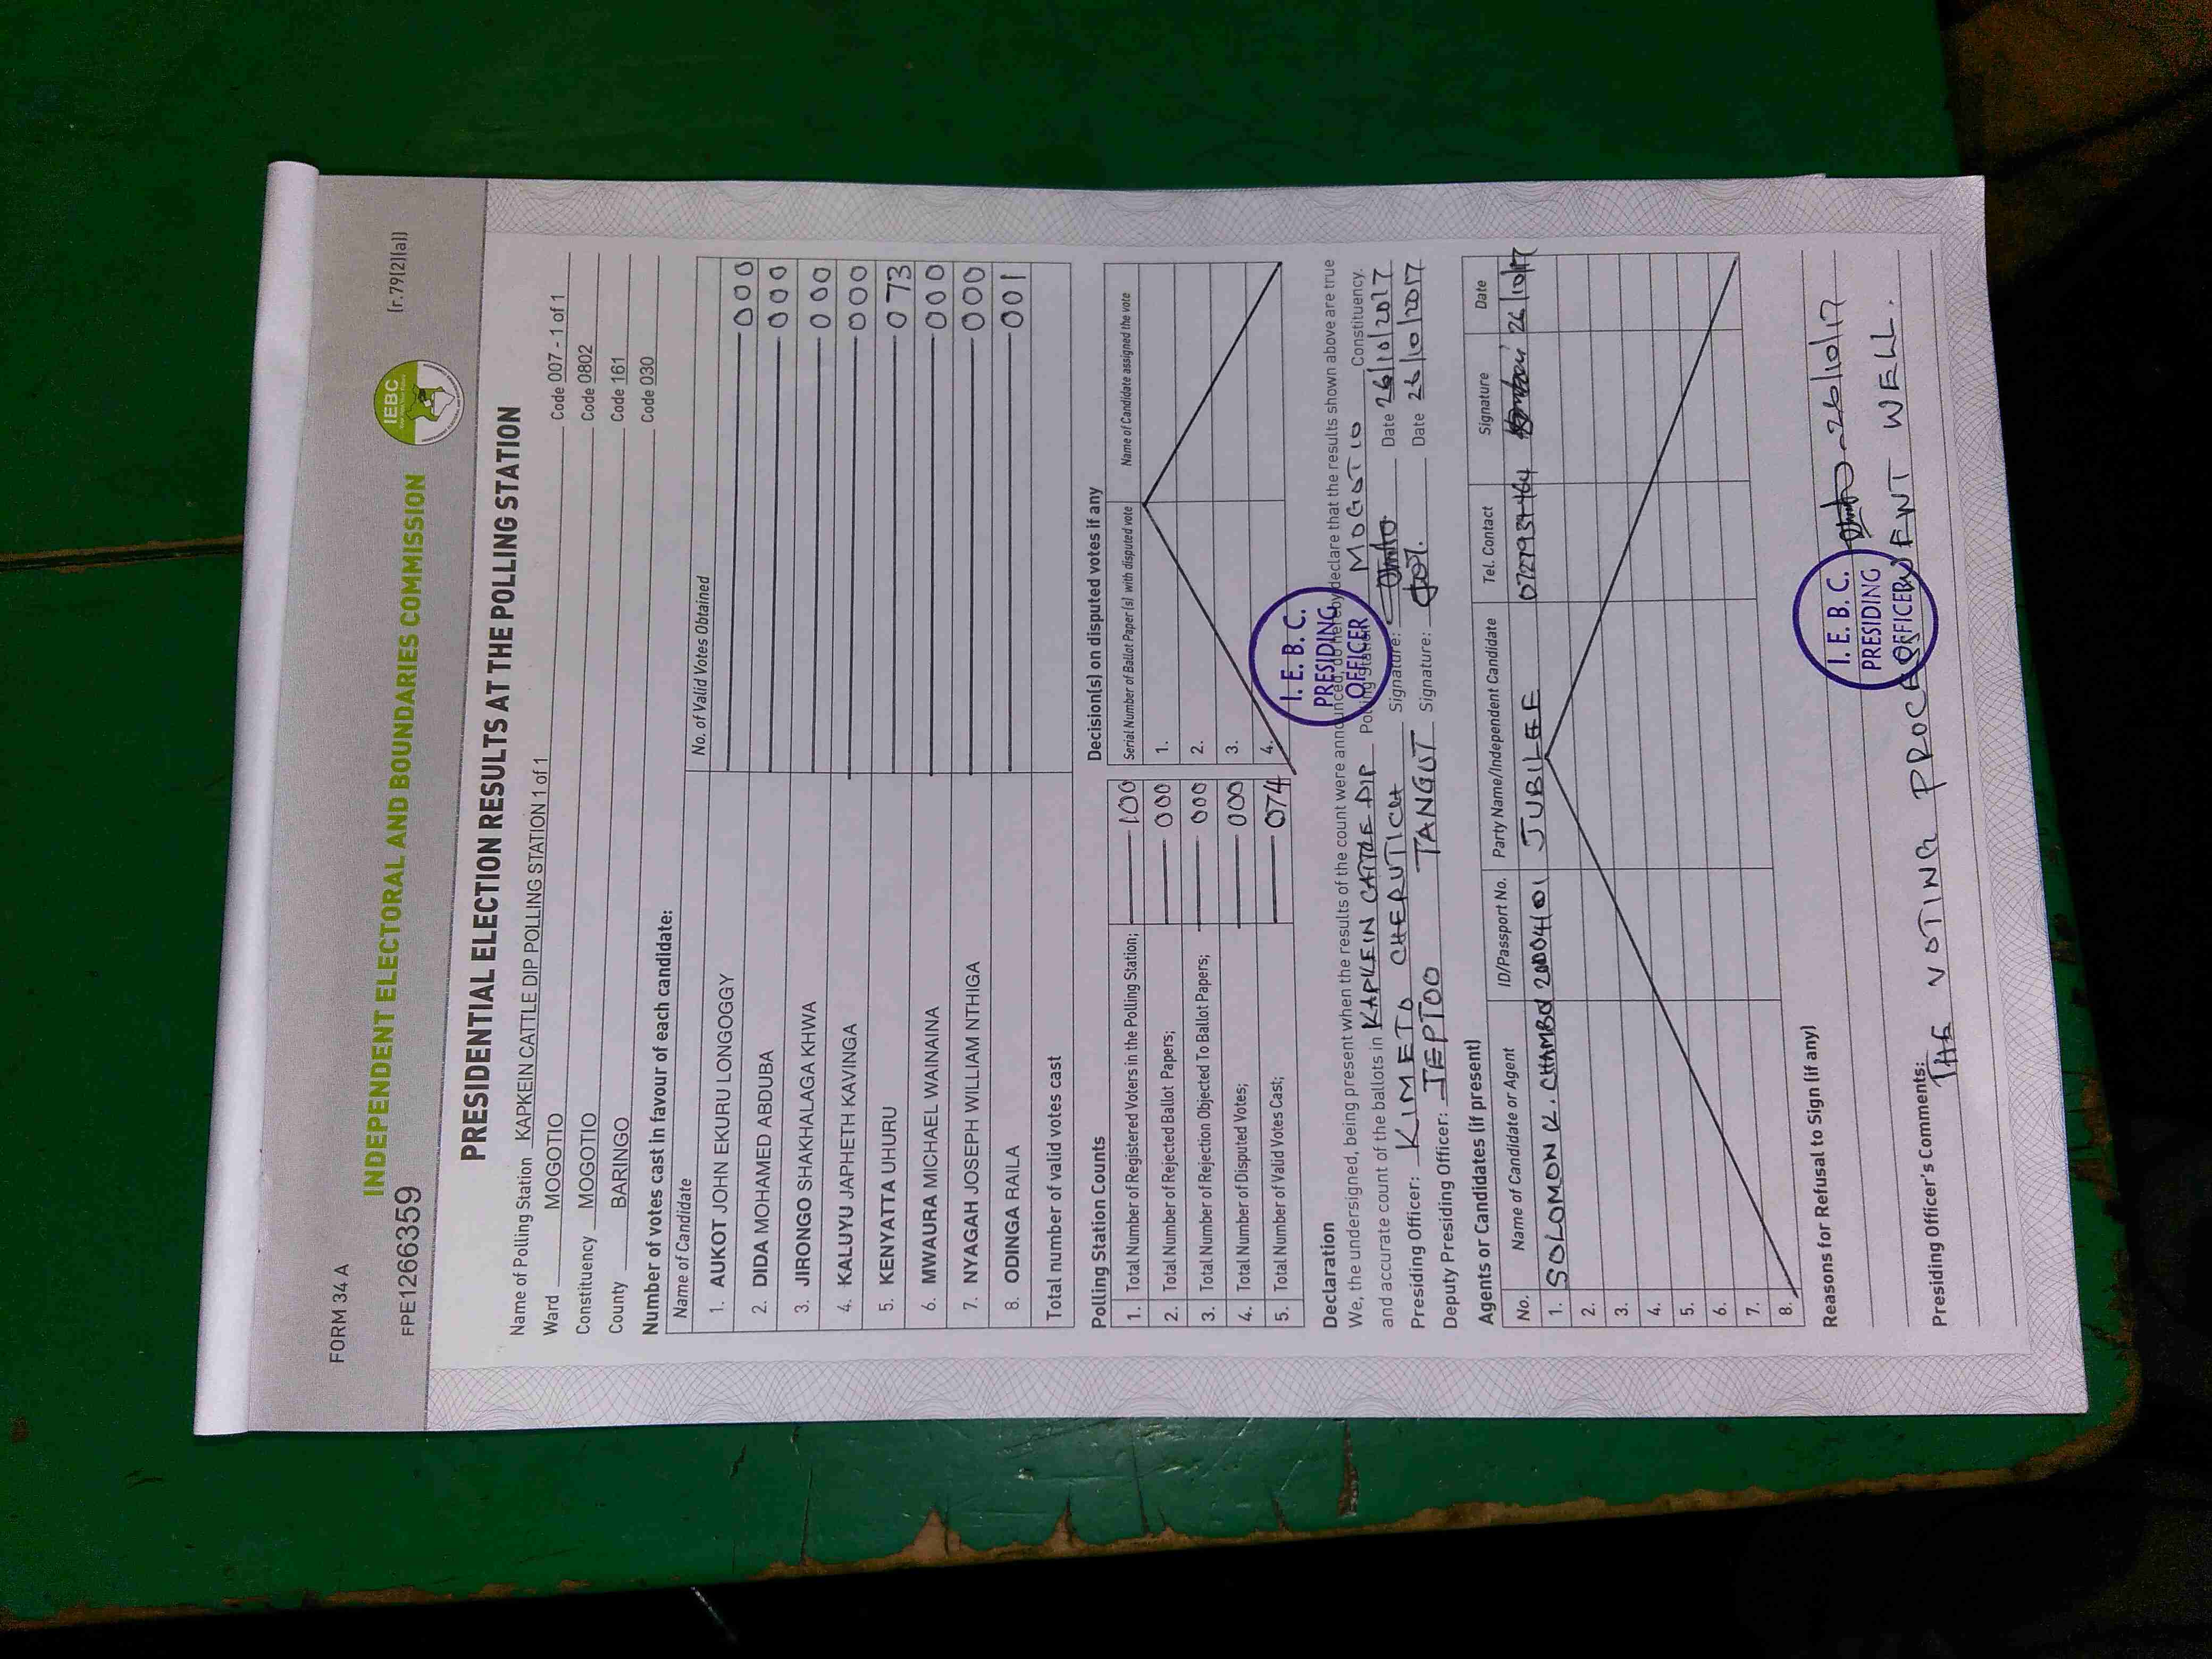 FORM 34 A
INDEPENDENT ELECTORAL AND BOUNDARIES COMMISSION
IEBC
[r.79(2)(a)]
FPE1266359
PRESIDENTIAL ELECTION RESULTS AT THE POLLING STATION
Name of Polling Station KAPKEIN CATTLE DIP POLLING STATION 1 of 1 Code 007 - 1 of 1
Ward MOGOTIO Code 0802
Constituency MOGOTIO Code 161
County BARINGO Code 030
Number of votes cast in favour of each candidate:
Name of Candidate No. of Valid Votes Obtained
1. AUKOT JOHN EKURU LONGOGGY 000
2. DIDA MOHAMED ABDUBA 000
3. JIRONGO SHAKHALAGA KHWA 000
4. KALUYU JAPHETH KAVINGA 000
5. KENYATTA UHURU 073
6. MWAURA MICHAEL WAINAINA 000
7. NYAGAH JOSEPH WILLIAM NTHIGA 000
8. ODINGA RAILA 001
Total number of valid votes cast
Polling Station Counts
1. Total Number of Registered Voters in the Polling Station; 100
2. Total Number of Rejected Ballot Papers; 000
3. Total Number of Rejection Objected To Ballot Papers; 000
4. Total Number of Disputed Votes; 000
5. Total Number of Valid Votes Cast; 074
Decision(s) on disputed votes if any
Serial Number of Ballot Paper(s) with disputed vote Name of Candidate assigned the vote
1.
2.
3.
4.
Declaration
We, the undersigned, being present when the results of the count were announced, do hereby declare that the results shown above are true
and accurate count of the ballots in KAPKEIN CATTLE DIP Polling Station MOGOTIO Constituency.
Presiding Officer: KIMETO CHERUTICH Signature: Date 26/10/2017
Deputy Presiding Officer: JEPTOO TANGUT Signature: Date 26/10/2017
I. E. B. C.
PRESIDING
OFFICER
Agents or Candidates (if present)
No. Name of Candidate or Agent ID/Passport No. Party Name/Independent Candidate Tel. Contact Signature Date
1. SOLOMON K. JUBILEE 26/10/17
2.
3.
4.
5.
6.
7.
8.
Reasons for Refusal to Sign (if any)
26/10/17
I. E. B. C.
PRESIDING
OFFICER
Presiding Officer's Comments:
THE VOTING PROCESS WENT WELL.